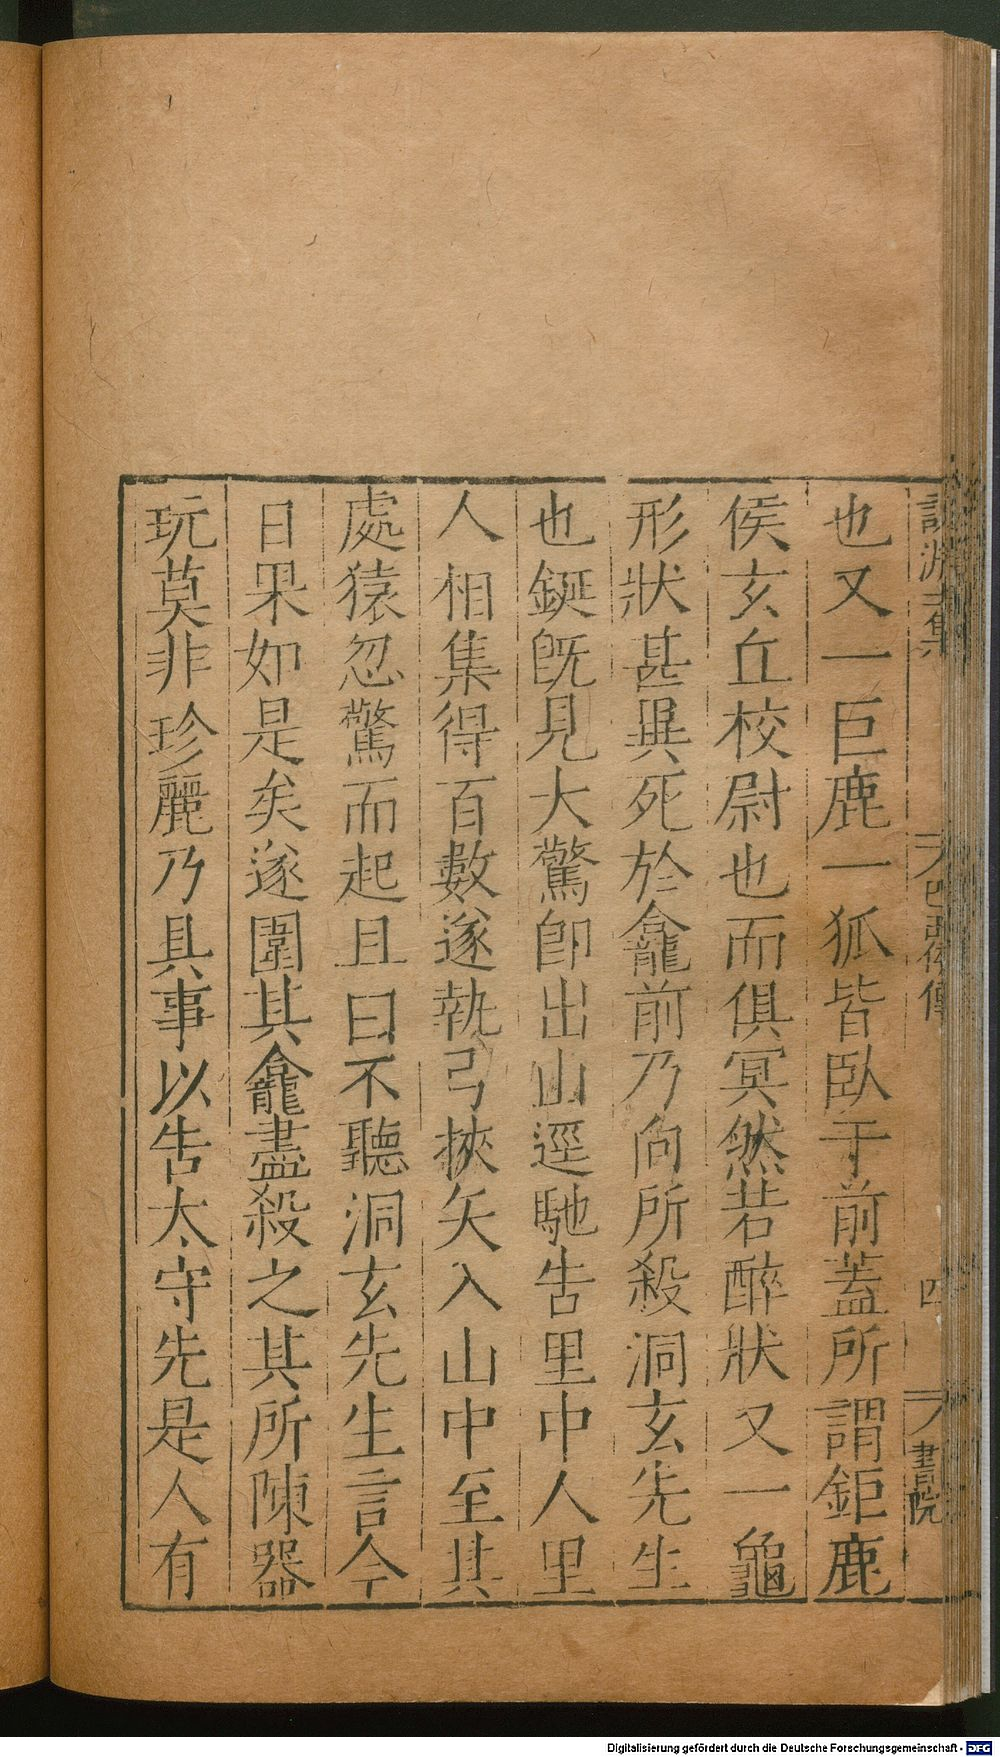 也又一巨鹿一狐皆臥于前蓋所謂鉅鹿
侯玄丘校尉也而俱冥然若醉狀又一龜
形狀甚異死於龕前乃向所殺洞玄先生
也鋋旣見大驚卽出山逕馳告里中人里
人相集得百數遂執弓挾矢入山中至其
處猿忽驚而起且曰不聽洞玄先生言今
日果如是矣遂圍其龕盡殺之其所陳器
玩莫非珍麗乃具事以告太守先是人有
四
書院
Digitalisierung gefördert durch die Deutsche Forschungsgemeinschaft - DFG